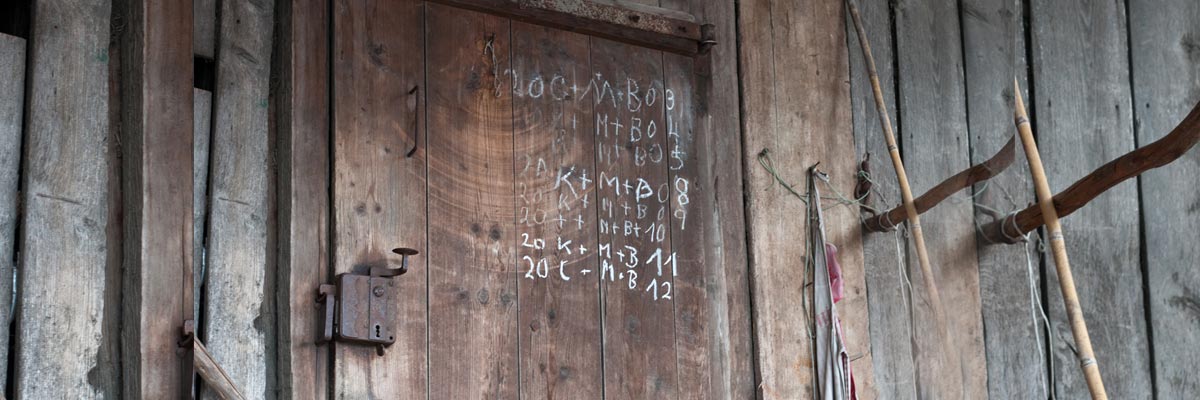 20 C + M + B 0 3
M + M + B 0 4
M + B 0 5
20 K + M + B 0 8
20 K + M + B 0 9
20 + + M + B + 10
20 K + M + B 11
20 C + M + B 12